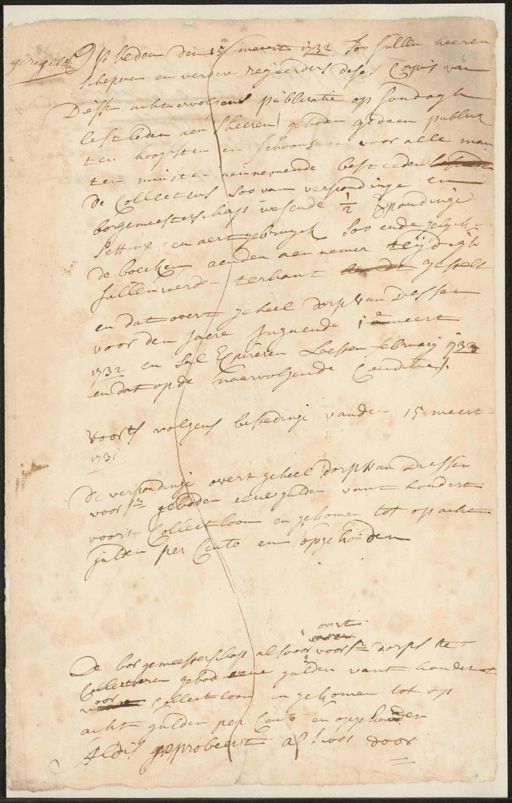 geregist
Op heden den 15 meert 1732 Soo sullen heeren
Schepenen en verdere regeerders deses Corpus van
Diessen achtervolgens publicatie op sondagh
lest leden aen gedaen publiecq
ten hooghsten en schoonsten voor alle man
ten minsten aennemende besteden
de Collecteurs soo van verpondinge en
borgemeesterschap wesende 1/2 Spondinge
Settinge en aert soo ende gelyck
de boecken aenden aennemer
sullen werden terhant gestelt
en dat overt geheel dorp van Diessen
voor den jaere ingaende 1e meert
1732 en sal Expireren Lesten february 1733
en dat op de naervolgende Conditien
voorts volgens bestedinge vanden 15 meert
1731
De verpondinge overt geheel dorp van Diessen
voorsz geboden eene gulden vant hondert
voor Collectloon en gekomen tot op acht
gulden per Cento en opgehouden
overt
De borgemeesterschap als voor voorsz dorp te
Collecteren gebod eene gulden vant hondert
voor Collectloon en gekomen tot op
acht gulden per Cento en opgehouden
Aldus geprobeert als voor door